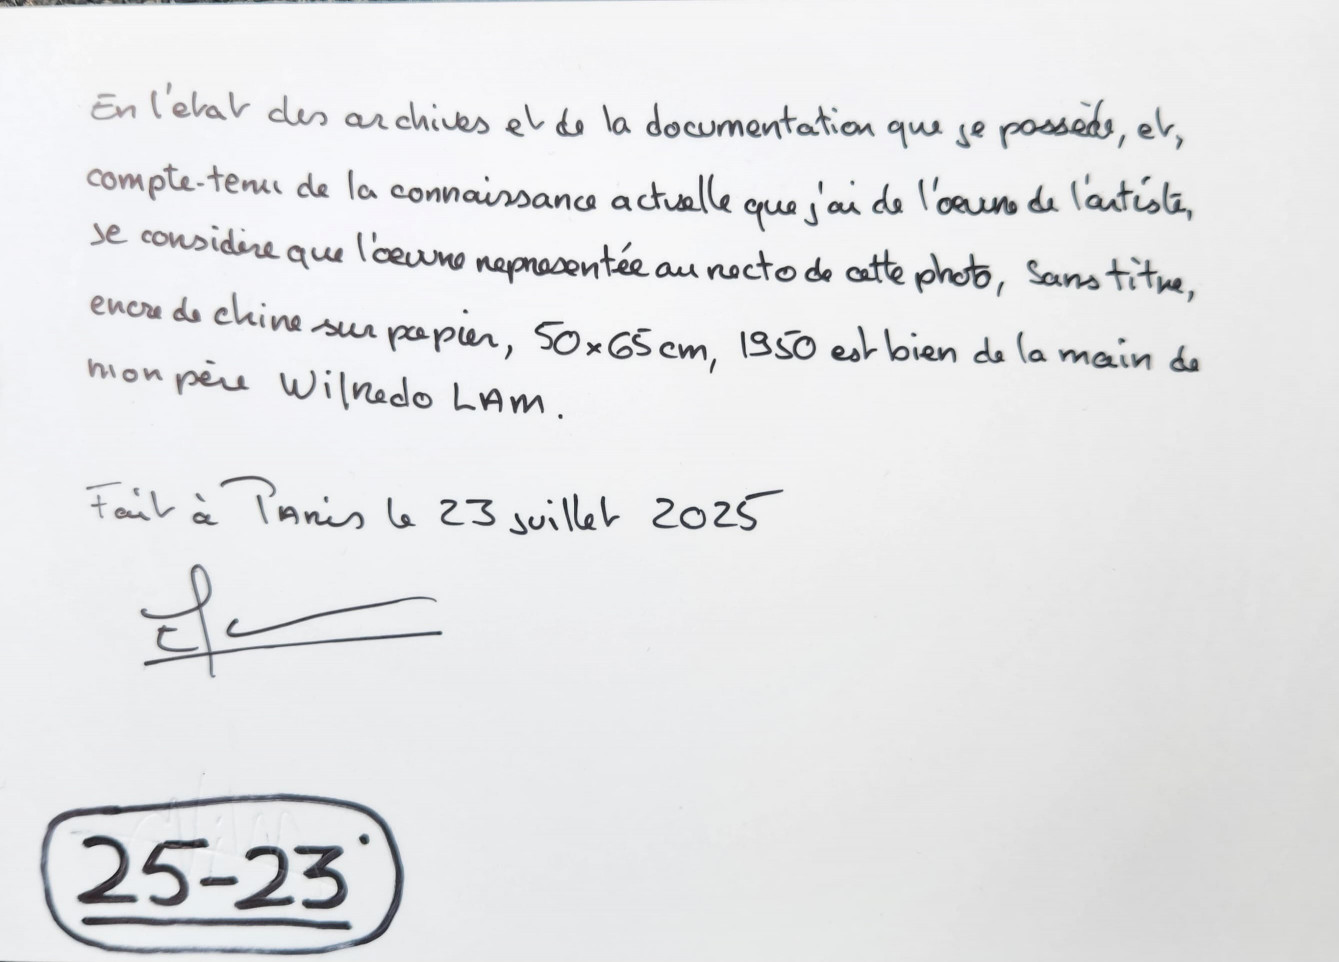 En l'état des archives et de la documentation que je possède, et,
compte-tenu de la connaissance actuelle que j'ai de l'œuvre de l'artiste,
je considère que l'œuvre représentée au recto de cette photo, Sans titre,
encre de chine sur papier, 50x65cm, 1950 est bien de la main de
mon père Wilfredo LAM.
Fait à Paris le 23 juillet 2025
25-23